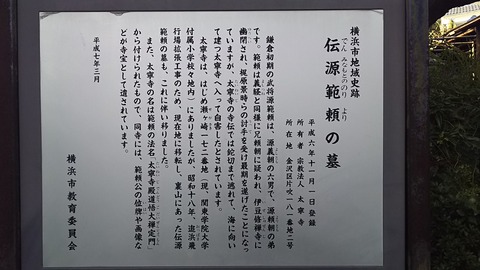 横浜市地域史跡
伝源範頼の墓
でんみなもとののりより
平成六年十一月一日登録
所有者 宗教法人 太寧寺
所在地 金沢区片吹一八一番地二号
鎌倉初期の武将源範頼は、源義朝の六男で、源頼朝の弟
です。範頼は義経と同様に兄頼朝に疑われ、伊豆修禅寺に
幽閉され、梶原景時らの討手を受け最期を遂げたことになっ
ていますが、太寧寺の寺伝では蛇切まで逃れて、海に向い
て建つ太寧寺へ入って自害したとされています。
太寧寺は、はじめ瀬ヶ崎一七二番地(現、関東学院大学
付属小学校々地内)にありましたが、昭和十八年、追浜飛
行場拡張工事のため、現在地に移転し、裏山にあった伝源
範頼の墓も、これに伴い移りました。
また、太寧寺の名は範頼の法名「太寧寺殿道悟大禅定門」
から付けられたもので、同寺には、範頼公の位牌や画像な
どが寺宝として遺されています。
平成七年三月
横浜市教育委員会